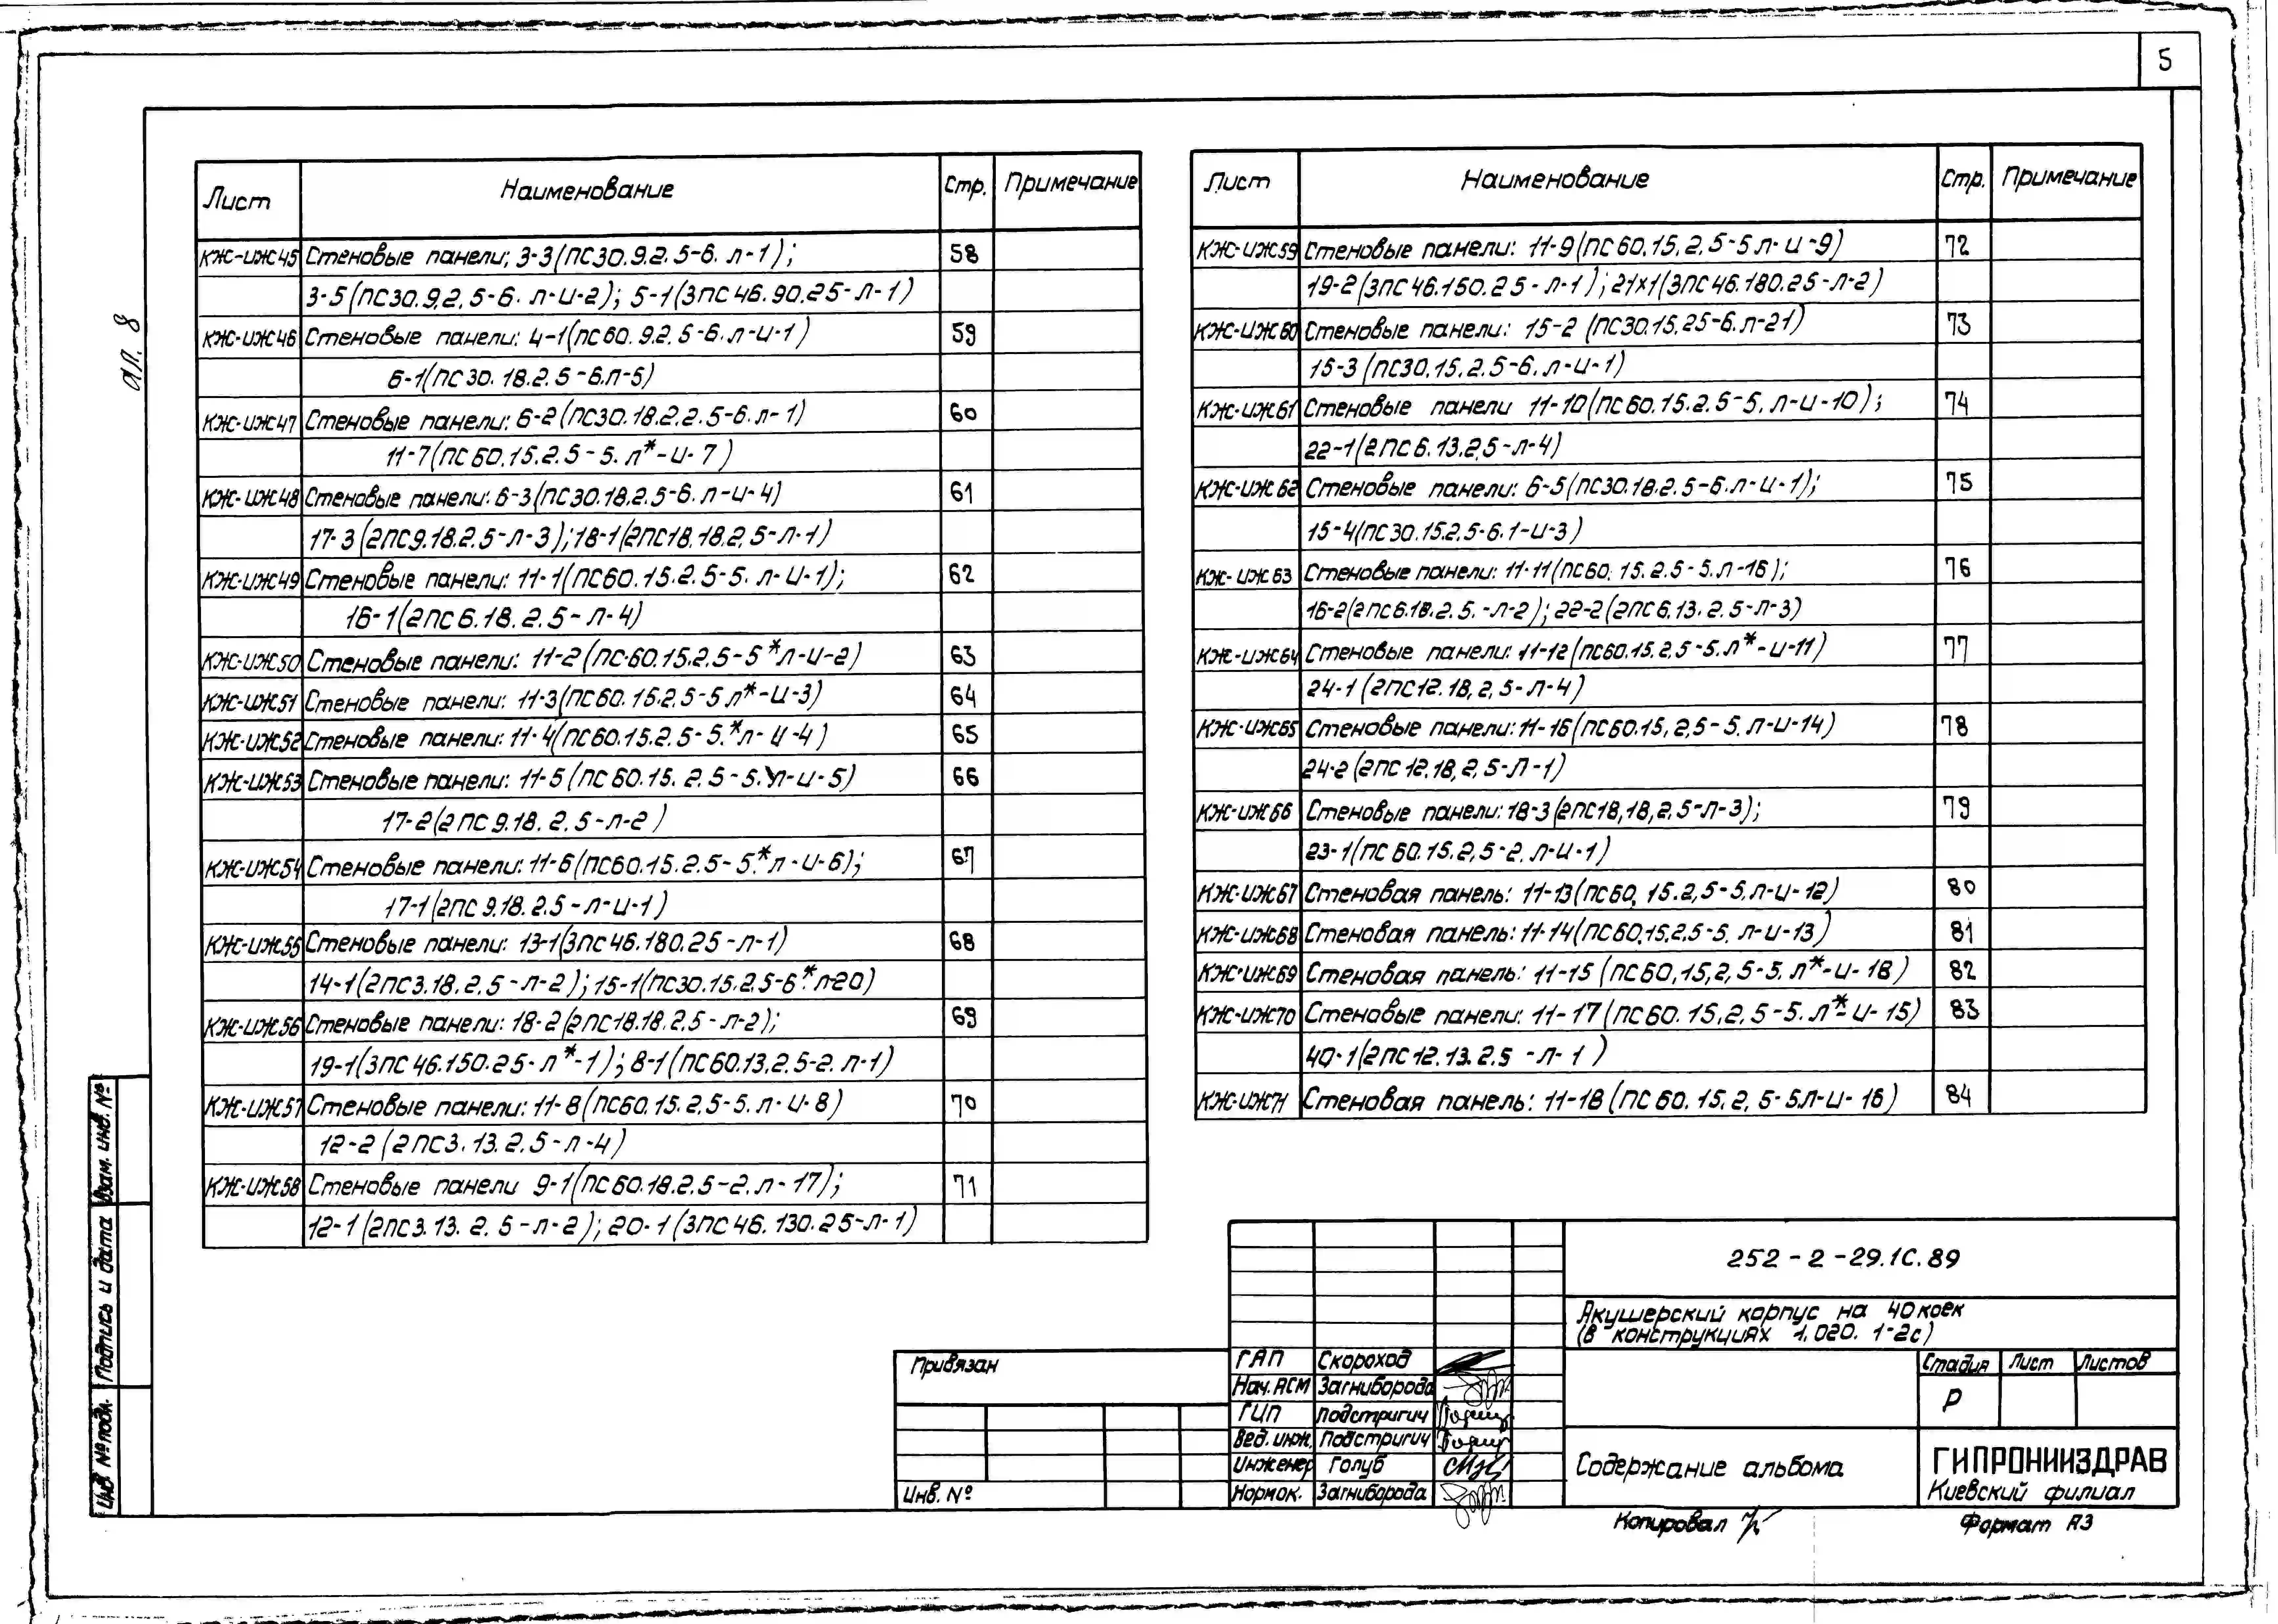 5
ал. 8
Лист Наименование Стр. Примечание
КЖ-ИЖ45 Стеновые панели; 3-3(ПС30.9.2.5-6. Л-1); 58
3-5(ПС30.9.2.5-6. Л-И-2); 5-1(3ПС46.90.25-Л-1)
КЖ-ИЖ46 Стеновые панели: 4-1(ПС60.9.2.5-6.Л-И-1) 59
6-1(ПС30.18.2.5-6.Л-5)
КЖ-ИЖ47 Стеновые панели: 6-2(ПС30.18.2.2.5-6.Л-1) 60
11-7(ПС60.15.2.5-5.Л*-И-7)
КЖ-ИЖ48 Стеновые панели: 6-3(ПС30.18.2.5-6.Л-И-4) 61
17-3(2ПС9.18.2.5-Л-3); 18-1(2ПС18.18.2.5-Л-1)
КЖ-ИЖ49 Стеновые панели: 11-1(ПС60.15.2.5-5.Л-И-1); 62
16-1(2ПС6.18.2.5-Л-4)
КЖ-ИЖ50 Стеновые панели: 11-2(ПС-60.15.2.5-5*Л-И-2) 63
КЖ-ИЖ51 Стеновые панели: 11-3(ПС60.15.2.5-5Л*-И-3) 64
КЖ-ИЖ52 Стеновые панели: 11-4(ПС60.15.2.5-5.*Л-И-4) 65
КЖ-ИЖ53 Стеновые панели: 11-5(ПС60.15.2.5-5.*Л-И-5) 66
17-2(2ПС9.18.2.5-Л-2)
КЖ-ИЖ54 Стеновые панели: 11-6(ПС60.15.2.5-5.*Л-И-6); 67
17-1(2ПС9.18.2.5-Л-И-1)
КЖ-ИЖ55 Стеновые панели: 13-1(3ПС46.180.25-Л-1) 68
14-1(2ПС3.18.2.5-Л-2); 15-1(ПС30.15.2.5-6.*Л-20)
КЖ-ИЖ56 Стеновые панели: 18-2(2ПС18.18.2.5-Л-2); 69
19-1(3ПС46.150.25-Л*-1); 8-1(ПС60.13.2.5-2.Л-1)
КЖ-ИЖ57 Стеновые панели: 11-8(ПС60.15.2.5-5.Л-И-8) 70
12-2(2ПС3.13.2.5-Л-4)
КЖ-ИЖ58 Стеновые панели 9-1(ПС60.18.2.5-2.Л-17); 71
12-1(2ПС3.13.2.5-Л-2); 20-1(3ПС46.130.25-Л-1)
Лист Наименование Стр. Примечание
КЖ-ИЖ59 Стеновые панели: 11-9(ПС60.15.2.5-5Л-И-9) 72
19-2(3ПС46.150.25-Л-1); 21х1(3ПС46.180.25-Л-2)
КЖ-ИЖ60 Стеновые панели: 15-2 (ПС30.15.25-6.Л-21) 73
15-3(ПС30.15.2.5-6.Л-И-1)
КЖ-ИЖ61 Стеновые панели 11-10(ПС60.15.2.5-5.Л-И-10); 74
22-1(2ПС6.13.2,5-Л-4)
КЖ-ИЖ62 Стеновые панели: 6-5(ПС30.18.2.5-6.Л-И-1); 75
15-4(ПС30.15.2.5-6.1-И-3)
КЖ-ИЖ63 Стеновые панели: 11-11(ПС60.15.2.5-5.Л-16); 76
16-2(2ПС6.18.2.5.-Л-2); 22-2(2ПС6.13.2.5-Л-3)
КЖ-ИЖ64 Стеновые панели: 11-12(ПС60.15.2,5-5.Л*-И-11) 77
24-1(2ПС12.18,2,5-Л-4)
КЖ-ИЖ65 Стеновые панели: 11-16(ПС60.15,2,5-5.Л-И-14) 78
24-2(2ПС12.18,2,5-Л-1)
КЖ-ИЖ66 Стеновые панели: 18-3(2ПС18,18,2,5-Л-3); 79
23-1(ПС60.15.2,5-2.Л-И-1)
КЖ-ИЖ67 Стеновая панель: 11-13(ПС60,15.2,5-5.Л-И-12) 80
КЖ-ИЖ68 Стеновая панель: 11-14(ПС60.15.2.5-5.Л-И-13) 81
КЖ-ИЖ69 Стеновая панель: 11-15(ПС60,15,2,5-5.Л*-И-18) 82
КЖ-ИЖ70 Стеновые панели: 11-17(ПС60.15,2,5-5.Л*-И-15) 83
40-1(2ПС12.13.2.5-Л-1)
КЖ-ИЖ71 Стеновая панель: 11-18(ПС60.15.2,5-5Л-И-16) 84
252-2-29.1С.89
Акушерский корпус на 40 коек
(в конструкциях 1.020.1-2с)
Привязан
Инв. №
ГАП Скороход
Нач. АСМ Загниборода
ГИП Подстригич
Вед. инж. Подстригич
Инженер Голуб
Нормок. Загниборода
Стадия Лист Листов
Р
Содержание альбома
ГИПРОНИИЗДРАВ
Киевский филиал
Копировал
Формат А3
Взам. инв. №
Подпись и дата
Инв. № подл.